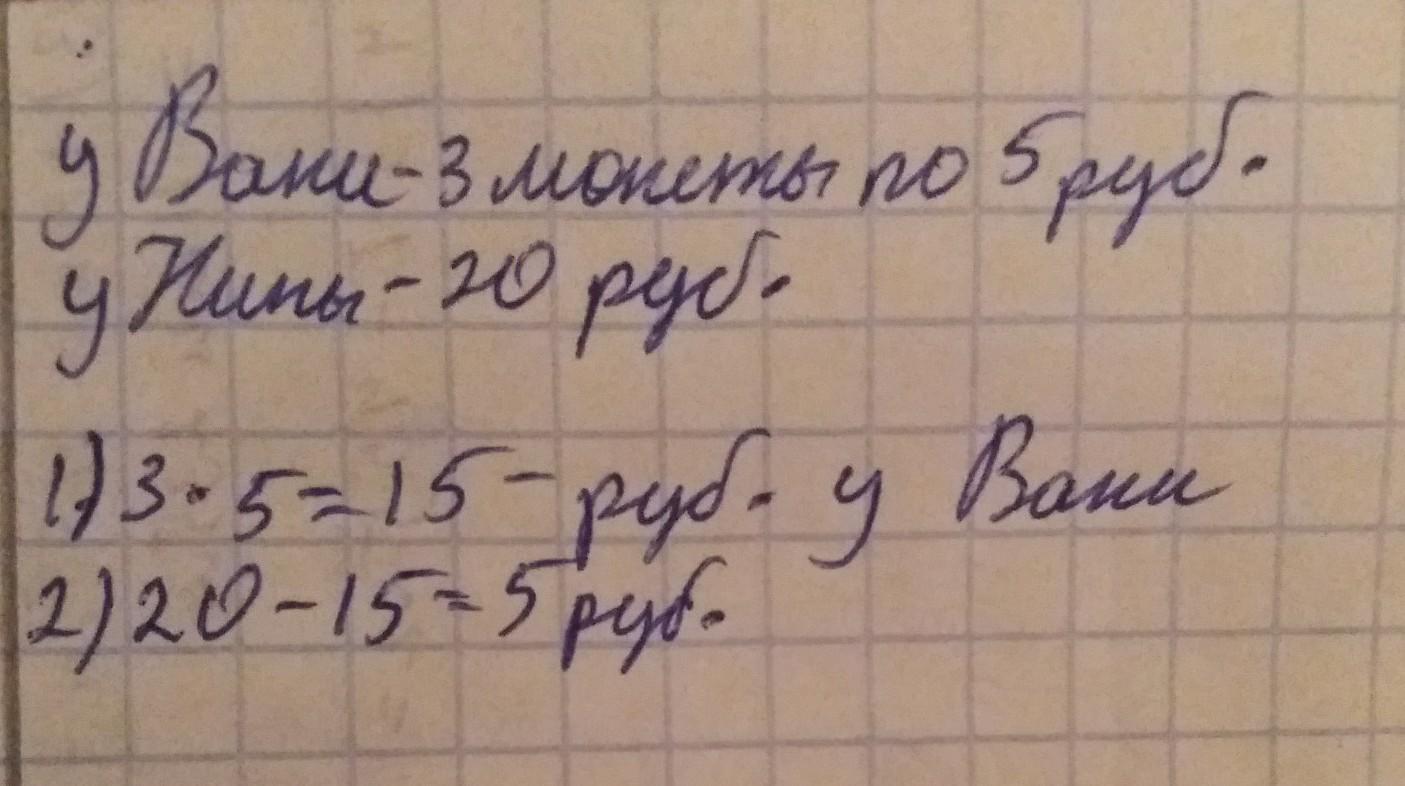 у Вани - 3 монеты по 5 руб.
у Нины - 20 руб.
1) 3 · 5 = 15 - руб. у Вани
2) 20 - 15 = 5 руб.